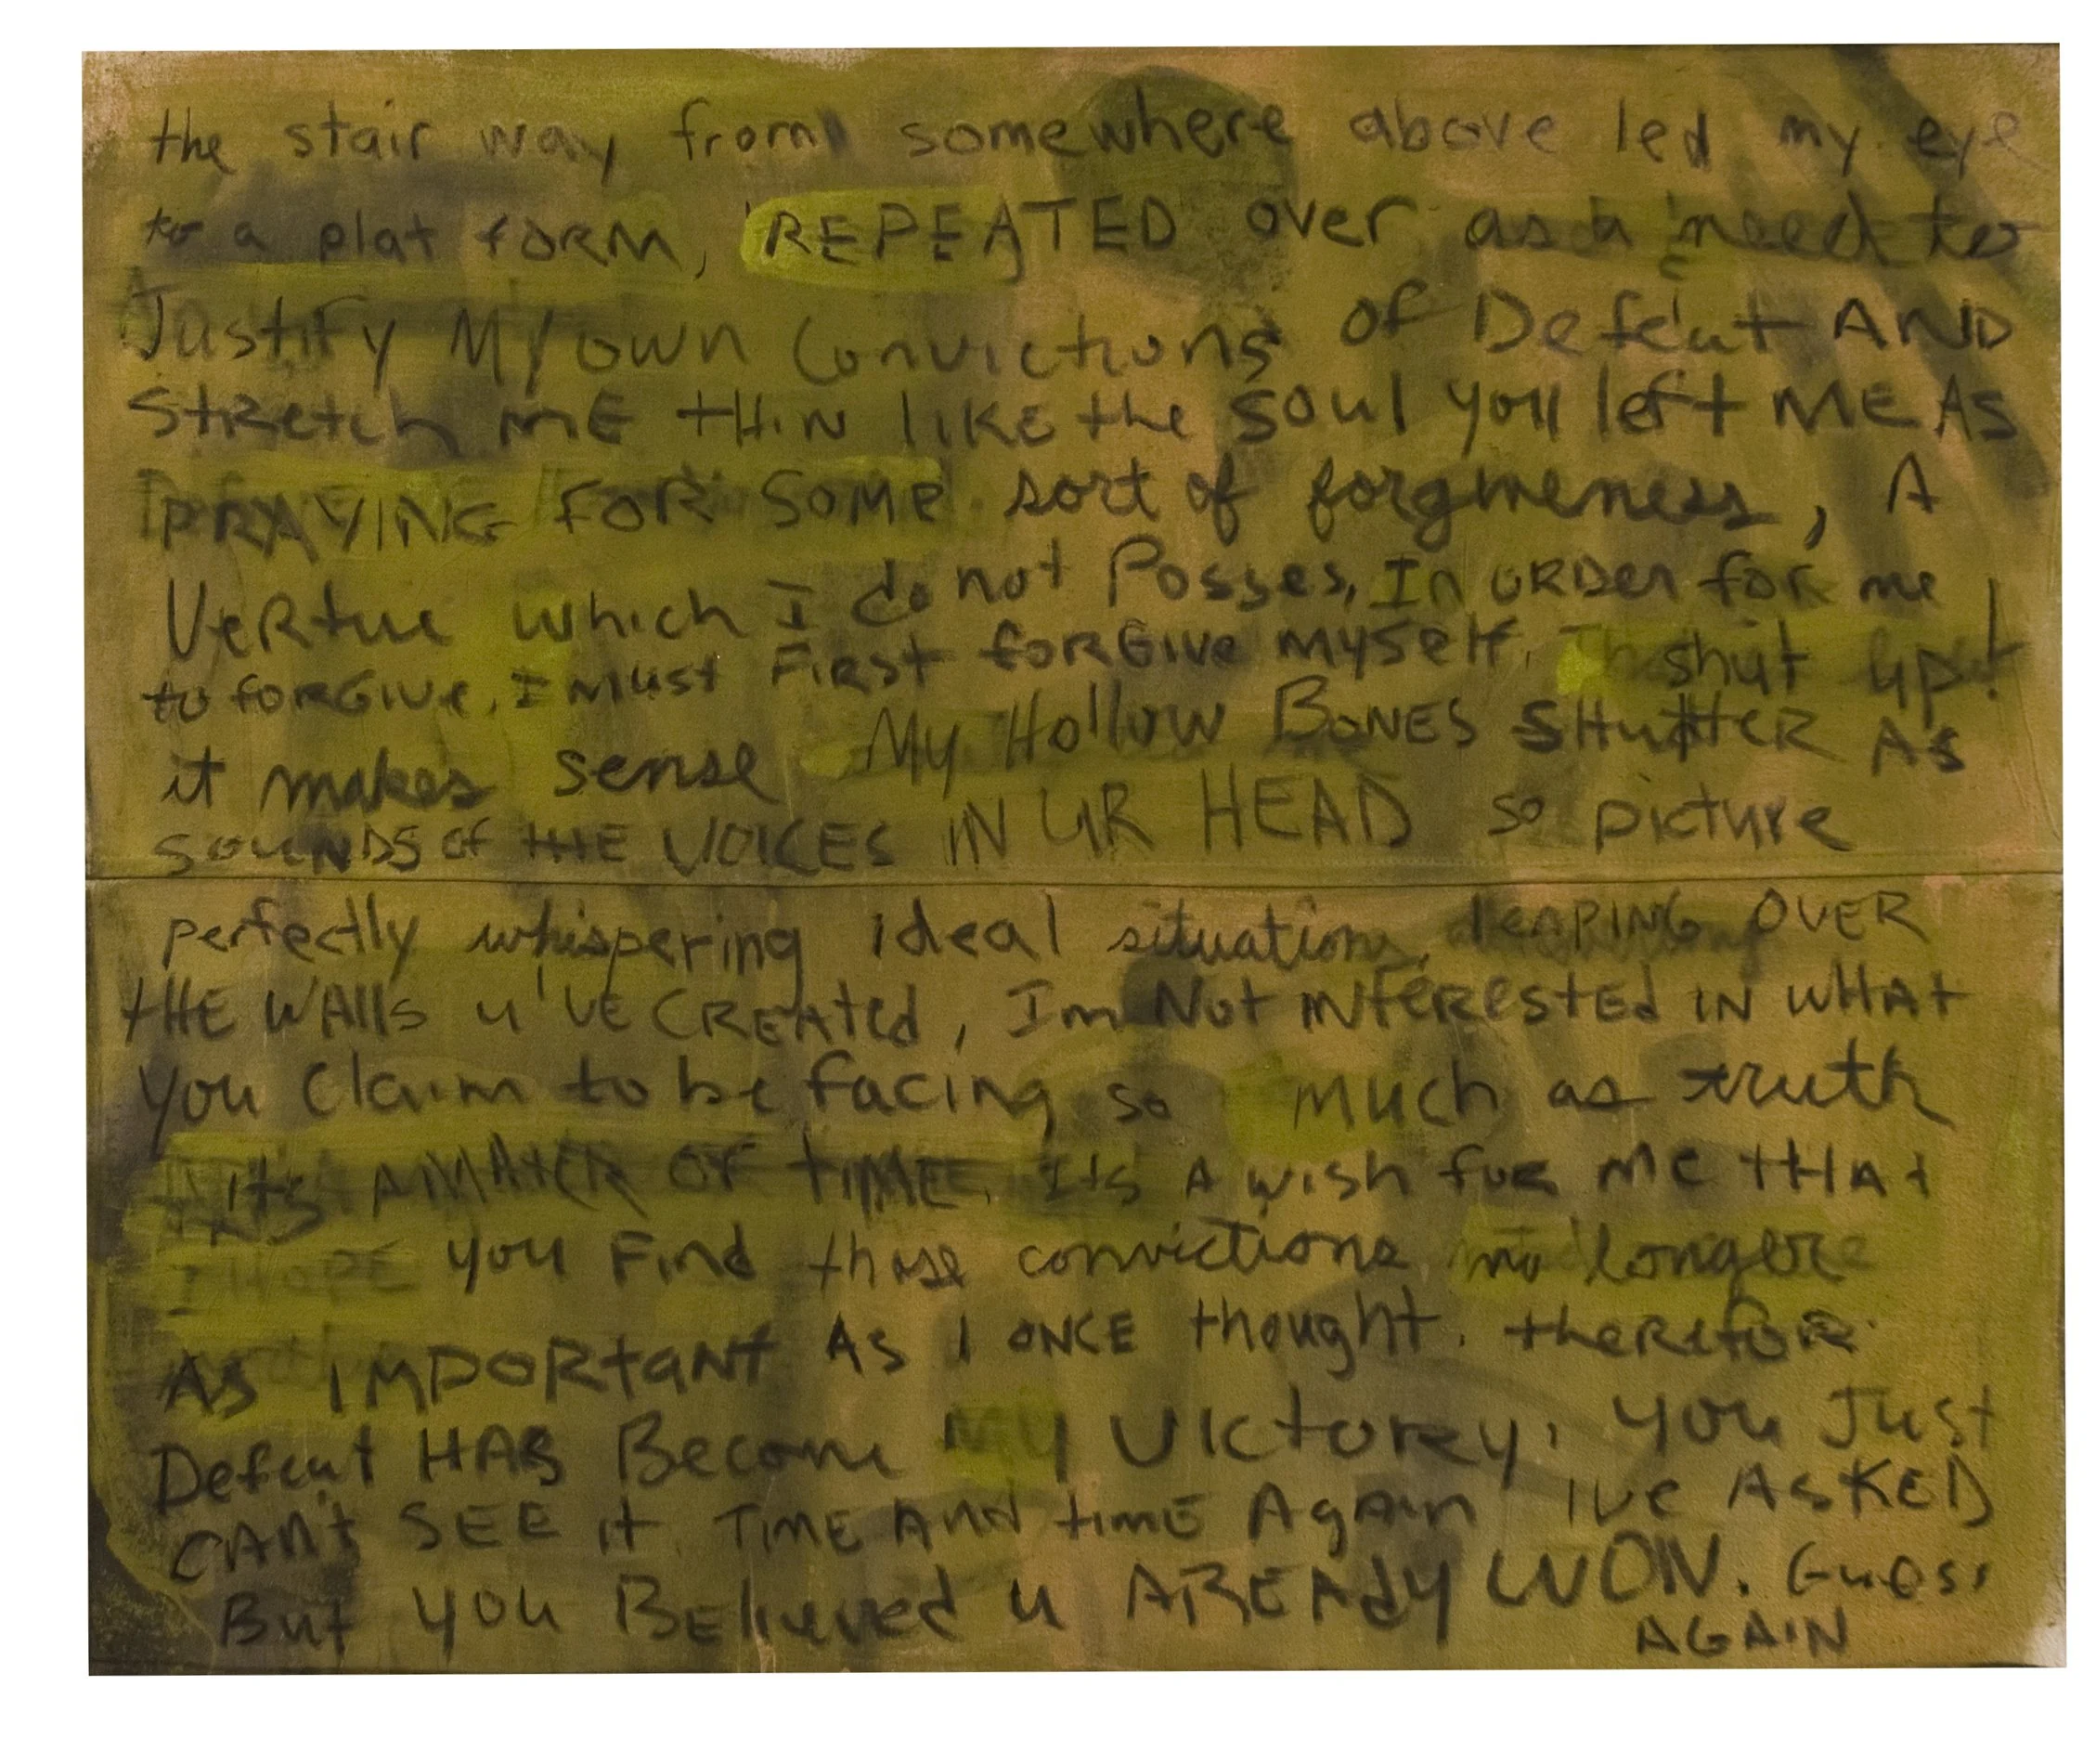 the stair way from somewhere above led my eye
to a plat form, REPEATED over as a need to
Justify My own Convictions of Defeat AND
Stretch ME thin like the soul you left ME AS
PRAYING FOR SOME sort of forgiveness, A
Vertue which I do not Posses, In order for me
to forgive, I Must First forgive Myself. shut up!
it makes sense My Hollow BONES SHutter AS
SOUNDS of tHE VOICES IN UR HEAD so picture
perfectly whispering ideal situation, leAPING OVER
tHE WAlls u'VE CREAted, Im Not INterested IN WHAt
you Claim to be facing so much as truth
its A MAtER OF tIME. Its A wish for Me tHAt
I HOPE you Find those convictions no longer
As IMPORtaNt As I ONCE thought. therefor
Defeat HAS Become My Victorey. you Just
CAN't SEE it. TIME AND tIME Again IVE ASKED
But you BElieved u AREAdy WON. Guess
AGAIN